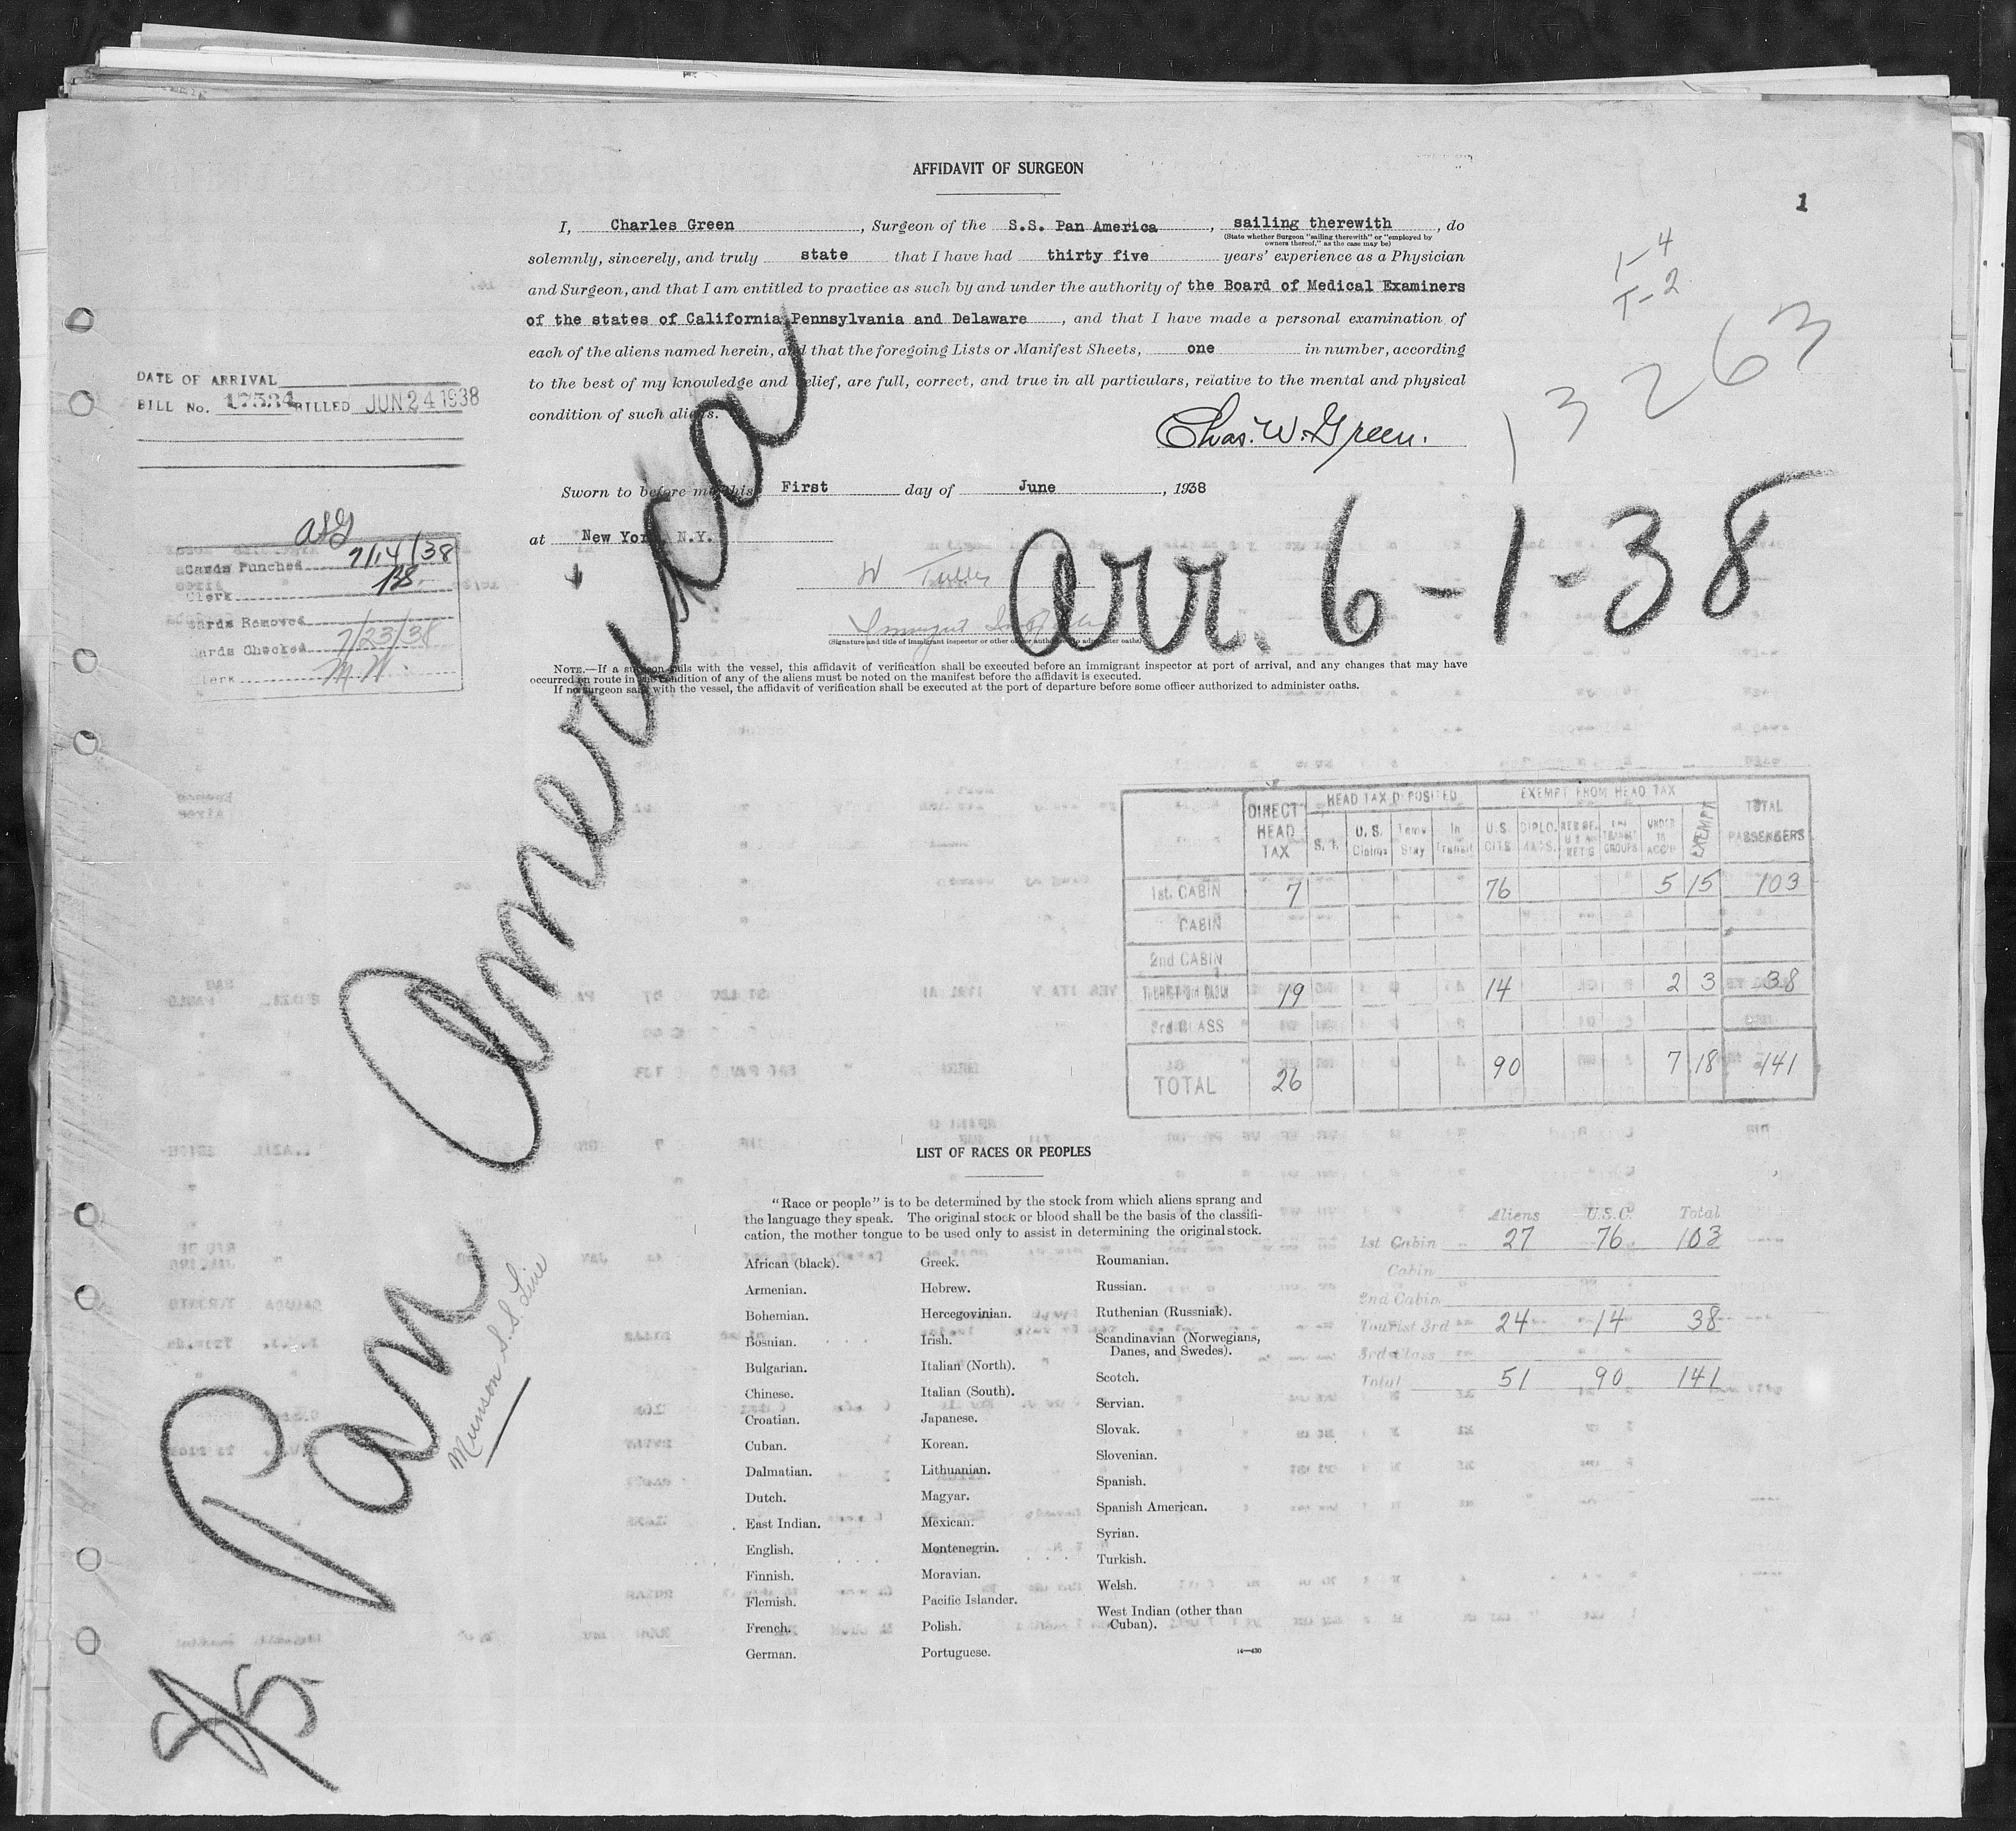 AFFIDAVIT OF SURGEON
1
I, Charles Green, Surgeon of the S.S. Pan America, sailing therewith, do
(State whether Surgeon "sailing therewith" or "employed by
owners thereof," as the case may be)
solemnly, sincerely, and truly state that I have had thirty five years' experience as a Physician
and Surgeon, and that I am entitled to practice as such by and under the authority of the Board of Medical Examiners
of the states of California, Pennsylvania and Delaware, and that I have made a personal examination of
each of the aliens named herein, and that the foregoing Lists or Manifest Sheets, one in number, according
to the best of my knowledge and belief, are full, correct, and true in all particulars, relative to the mental and physical
condition of such aliens.
Chas. W. Green.
1-4
T-2
13263
DATE OF ARRIVAL
BILL No. 17534 BILLED JUN 24 1938
Sworn to before me this First day of June, 1938
at New York, N.Y.
arr. 6-1-38
Cards Punched 7/14/38
Clerk
Cards Removed
Cards Checked 7/23/38
Clerk M.N.
(Signature and title of immigrant inspector or other officer authorized to administer oaths)
NOTE.—If a surgeon sails with the vessel, this affidavit of verification shall be executed before an immigrant inspector at port of arrival, and any changes that may have
occurred en route in the condition of any of the aliens must be noted on the manifest before the affidavit is executed.
If no surgeon sails with the vessel, the affidavit of verification shall be executed at the port of departure before some officer authorized to administer oaths.
S/S. Pan America
Munson S.S. Line
DIRECT HEAD TAX HEAD TAX DEPOSITED EXEMPT FROM HEAD TAX TOTAL PASSENGERS
S. I. U. S. Claims Temp Stay In Transit U. S. CITS DIPLO. MATS. IN TRANSIT GROUPS UNDER 16 ACC'P EXEMPT
1st. CABIN 7 76 5 15 103
CABIN
2nd CABIN
TOURIST 3rd CABIN 19 14 2 3 38
3rd CLASS
TOTAL 26 90 7 18 141
LIST OF RACES OR PEOPLES
"Race or people" is to be determined by the stock from which aliens sprang and
the language they speak. The original stock or blood shall be the basis of the classifi-
cation, the mother tongue to be used only to assist in determining the original stock.
African (black).
Armenian.
Bohemian.
Bosnian.
Bulgarian.
Chinese.
Croatian.
Cuban.
Dalmatian.
Dutch.
East Indian.
English.
Finnish.
Flemish.
French.
German.
Greek.
Hebrew.
Hercegovinian.
Irish.
Italian (North).
Italian (South).
Japanese.
Korean.
Lithuanian.
Magyar.
Mexican.
Montenegrin.
Moravian.
Pacific Islander.
Polish.
Portuguese.
Roumanian.
Russian.
Ruthenian (Russniak).
Scandinavian (Norwegians,
Danes, and Swedes).
Scotch.
Servian.
Slovak.
Slovenian.
Spanish.
Spanish American.
Syrian.
Turkish.
Welsh.
West Indian (other than
Cuban).
14—430
Aliens U.S.C. Total
1st Cabin 27 76 103
Cabin
2nd Cabin
Tourist 3rd 24 14 38
3rd Class
Total 51 90 141